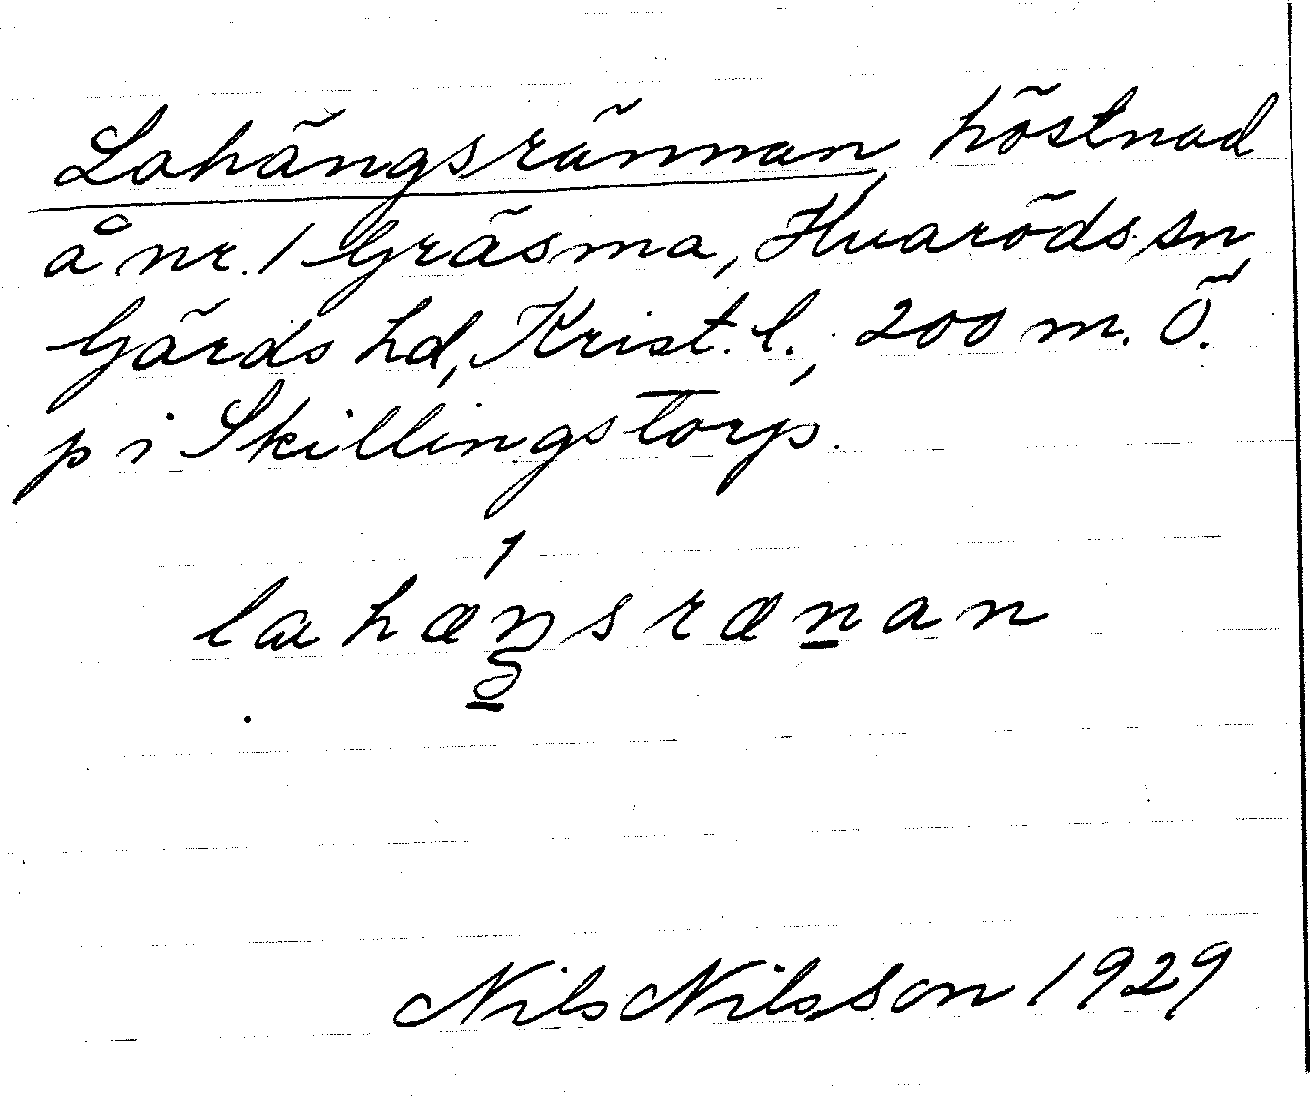 Lahängsrännan höstnad
å nr. 1 Gräsma, Huaröds sn,
Gärds hd, Krist. l., 200 m. Ö.
p i Skillingstorp.
lahæŋsrænan
Nils Nilsson 1929